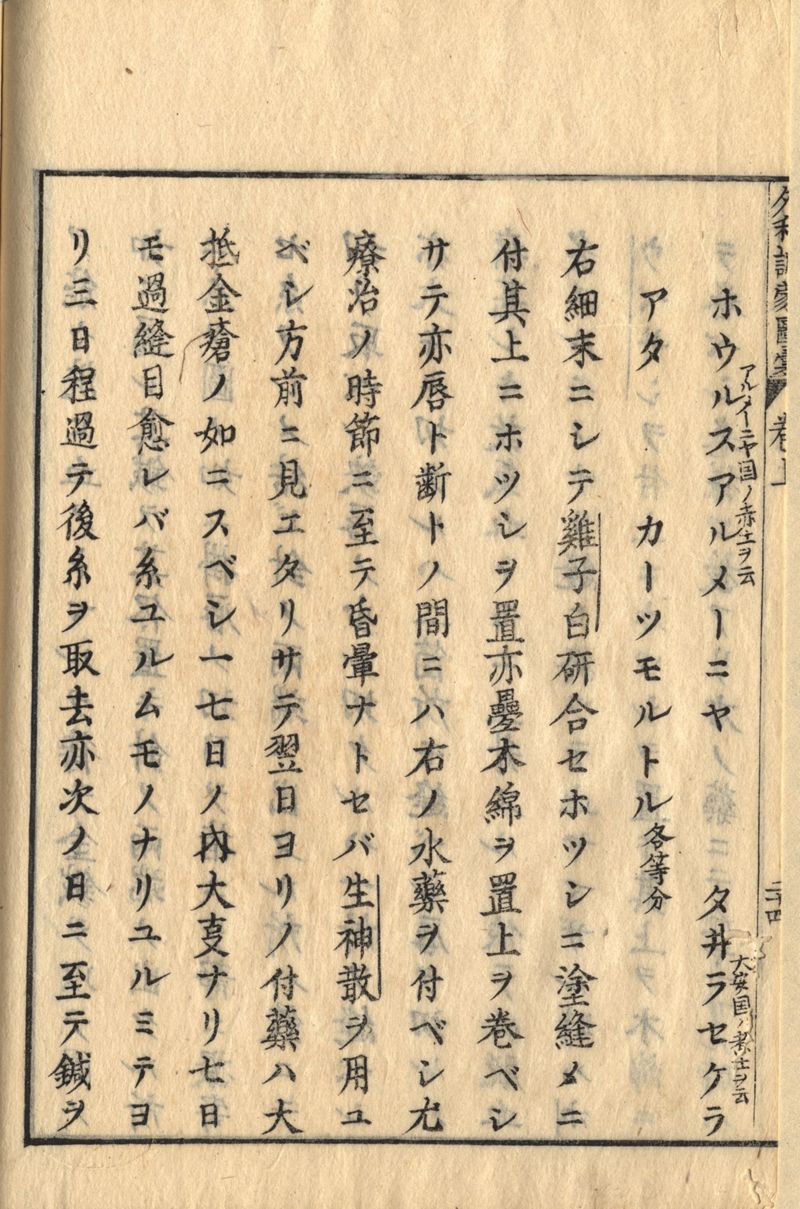 外科訓蒙圖彙 卷上
二十四
ホウルスアルメーニヤ タ井ラセケラ
アルメイニヤ国ノ赤土ヲ云
国ノ赤土ヲ云
アタ カーツモルトル 各等分
右細末ニシテ雞子白研合セホツシニ塗縫メニ
付其上ニホツシヲ置亦疊木綿ヲ置上ヲ巻ベシ
サテ亦唇ト断トノ間ニハ右ノ水藥ヲ付ベシ尤
療治ノ時節ニ至テ昏暈ナトセバ生神散ヲ用ユ
ベシ方前ニ見エタリサテ翌日ヨリノ付藥ハ大
抵金瘡ノ如ニスベシ一七日ノ内大叓ナリ七日
モ過縫目愈レバ糸ユルムモノナリユルミテヨ
リ三日程過テ後糸ヲ取去亦次ノ日ニ至テ鍼ヲ